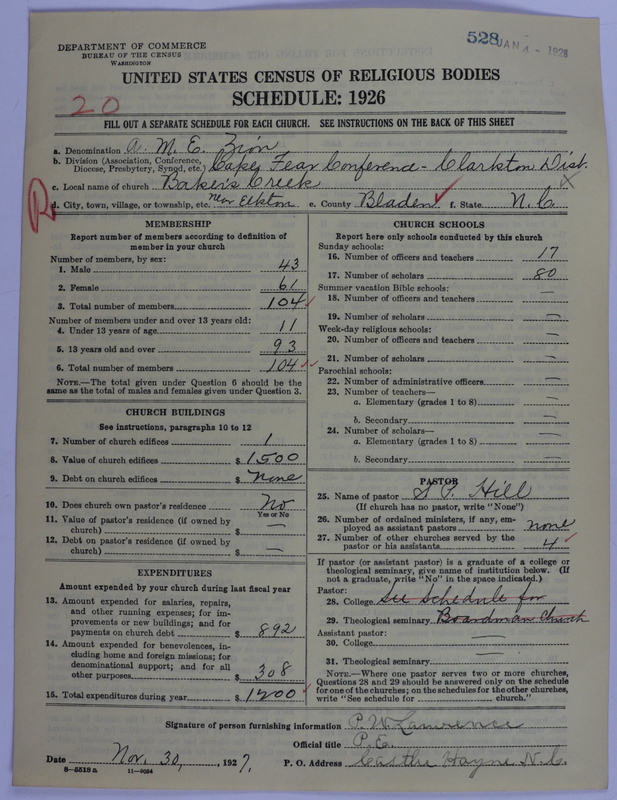 528 JAN 4 - 1928
DEPARTMENT OF COMMERCE
BUREAU OF THE CENSUS
WASHINGTON
UNITED STATES CENSUS OF RELIGIOUS BODIES
SCHEDULE: 1926
20
FILL OUT A SEPARATE SCHEDULE FOR EACH CHURCH. SEE INSTRUCTIONS ON THE BACK OF THIS SHEET
a. Denomination A. M. E. Zion
b. Division (Association, Conference, Diocese, Presbytery, Synod, etc.) Cape Fear Conference - Clarkton Dist.
c. Local name of church Baker's Creek
d. City, town, village, or township, etc. Near Elkton e. County Bladen f. State N. C.
MEMBERSHIP
Report number of members according to definition of
member in your church
Number of members, by sex:
1. Male 43
2. Female 61
3. Total number of members 104
Number of members under and over 13 years old:
4. Under 13 years of age 11
5. 13 years old and over 93
6. Total number of members 104
NOTE.—The total given under Question 6 should be the
same as the total of males and females given under Question 3.
CHURCH BUILDINGS
See instructions, paragraphs 10 to 12
7. Number of church edifices 1
8. Value of church edifices $ 1500
9. Debt on church edifices $ None
10. Does church own pastor's residence No
Yes or No
11. Value of pastor's residence (if owned by
church) $ —
12. Debt on pastor's residence (if owned by
church) $ —
EXPENDITURES
Amount expended by your church during last fiscal year
13. Amount expended for salaries, repairs,
and other running expenses; for im-
provements or new buildings; and for
payments on church debt $ 892
14. Amount expended for benevolences, in-
cluding home and foreign missions; for
denominational support; and for all
other purposes $ 308
15. Total expenditures during year $ 1200
CHURCH SCHOOLS
Report here only schools conducted by this church
Sunday schools:
16. Number of officers and teachers 17
17. Number of scholars 80
Summer vacation Bible schools:
18. Number of officers and teachers —
19. Number of scholars —
Week-day religious schools:
20. Number of officers and teachers —
21. Number of scholars —
Parochial schools:
22. Number of administrative officers —
23. Number of teachers—
a. Elementary (grades 1 to 8) —
b. Secondary —
24. Number of scholars—
a. Elementary (grades 1 to 8) —
b. Secondary —
PASTOR
25. Name of pastor S. P. Hill
(If church has no pastor, write "None")
26. Number of ordained ministers, if any, em-
ployed as assistant pastors none
27. Number of other churches served by the
pastor or his assistants 4
If pastor (or assistant pastor) is a graduate of a college or
theological seminary, give name of institution below. (If
not a graduate, write "No" in the space indicated.)
Pastor:
28. College See Schedule for
29. Theological seminary Boardman Church
Assistant pastor:
30. College —
31. Theological seminary —
NOTE.—Where one pastor serves two or more churches,
Questions 28 and 29 should be answered only on the schedule
for one of the churches; on the schedules for the other churches,
write "See schedule for church."
Signature of person furnishing information P. W. Lawrence
Official title P. E.
Date Nov. 30, 1927. P. O. Address Castle Hayne N. C.
8—5518 a 11—9084